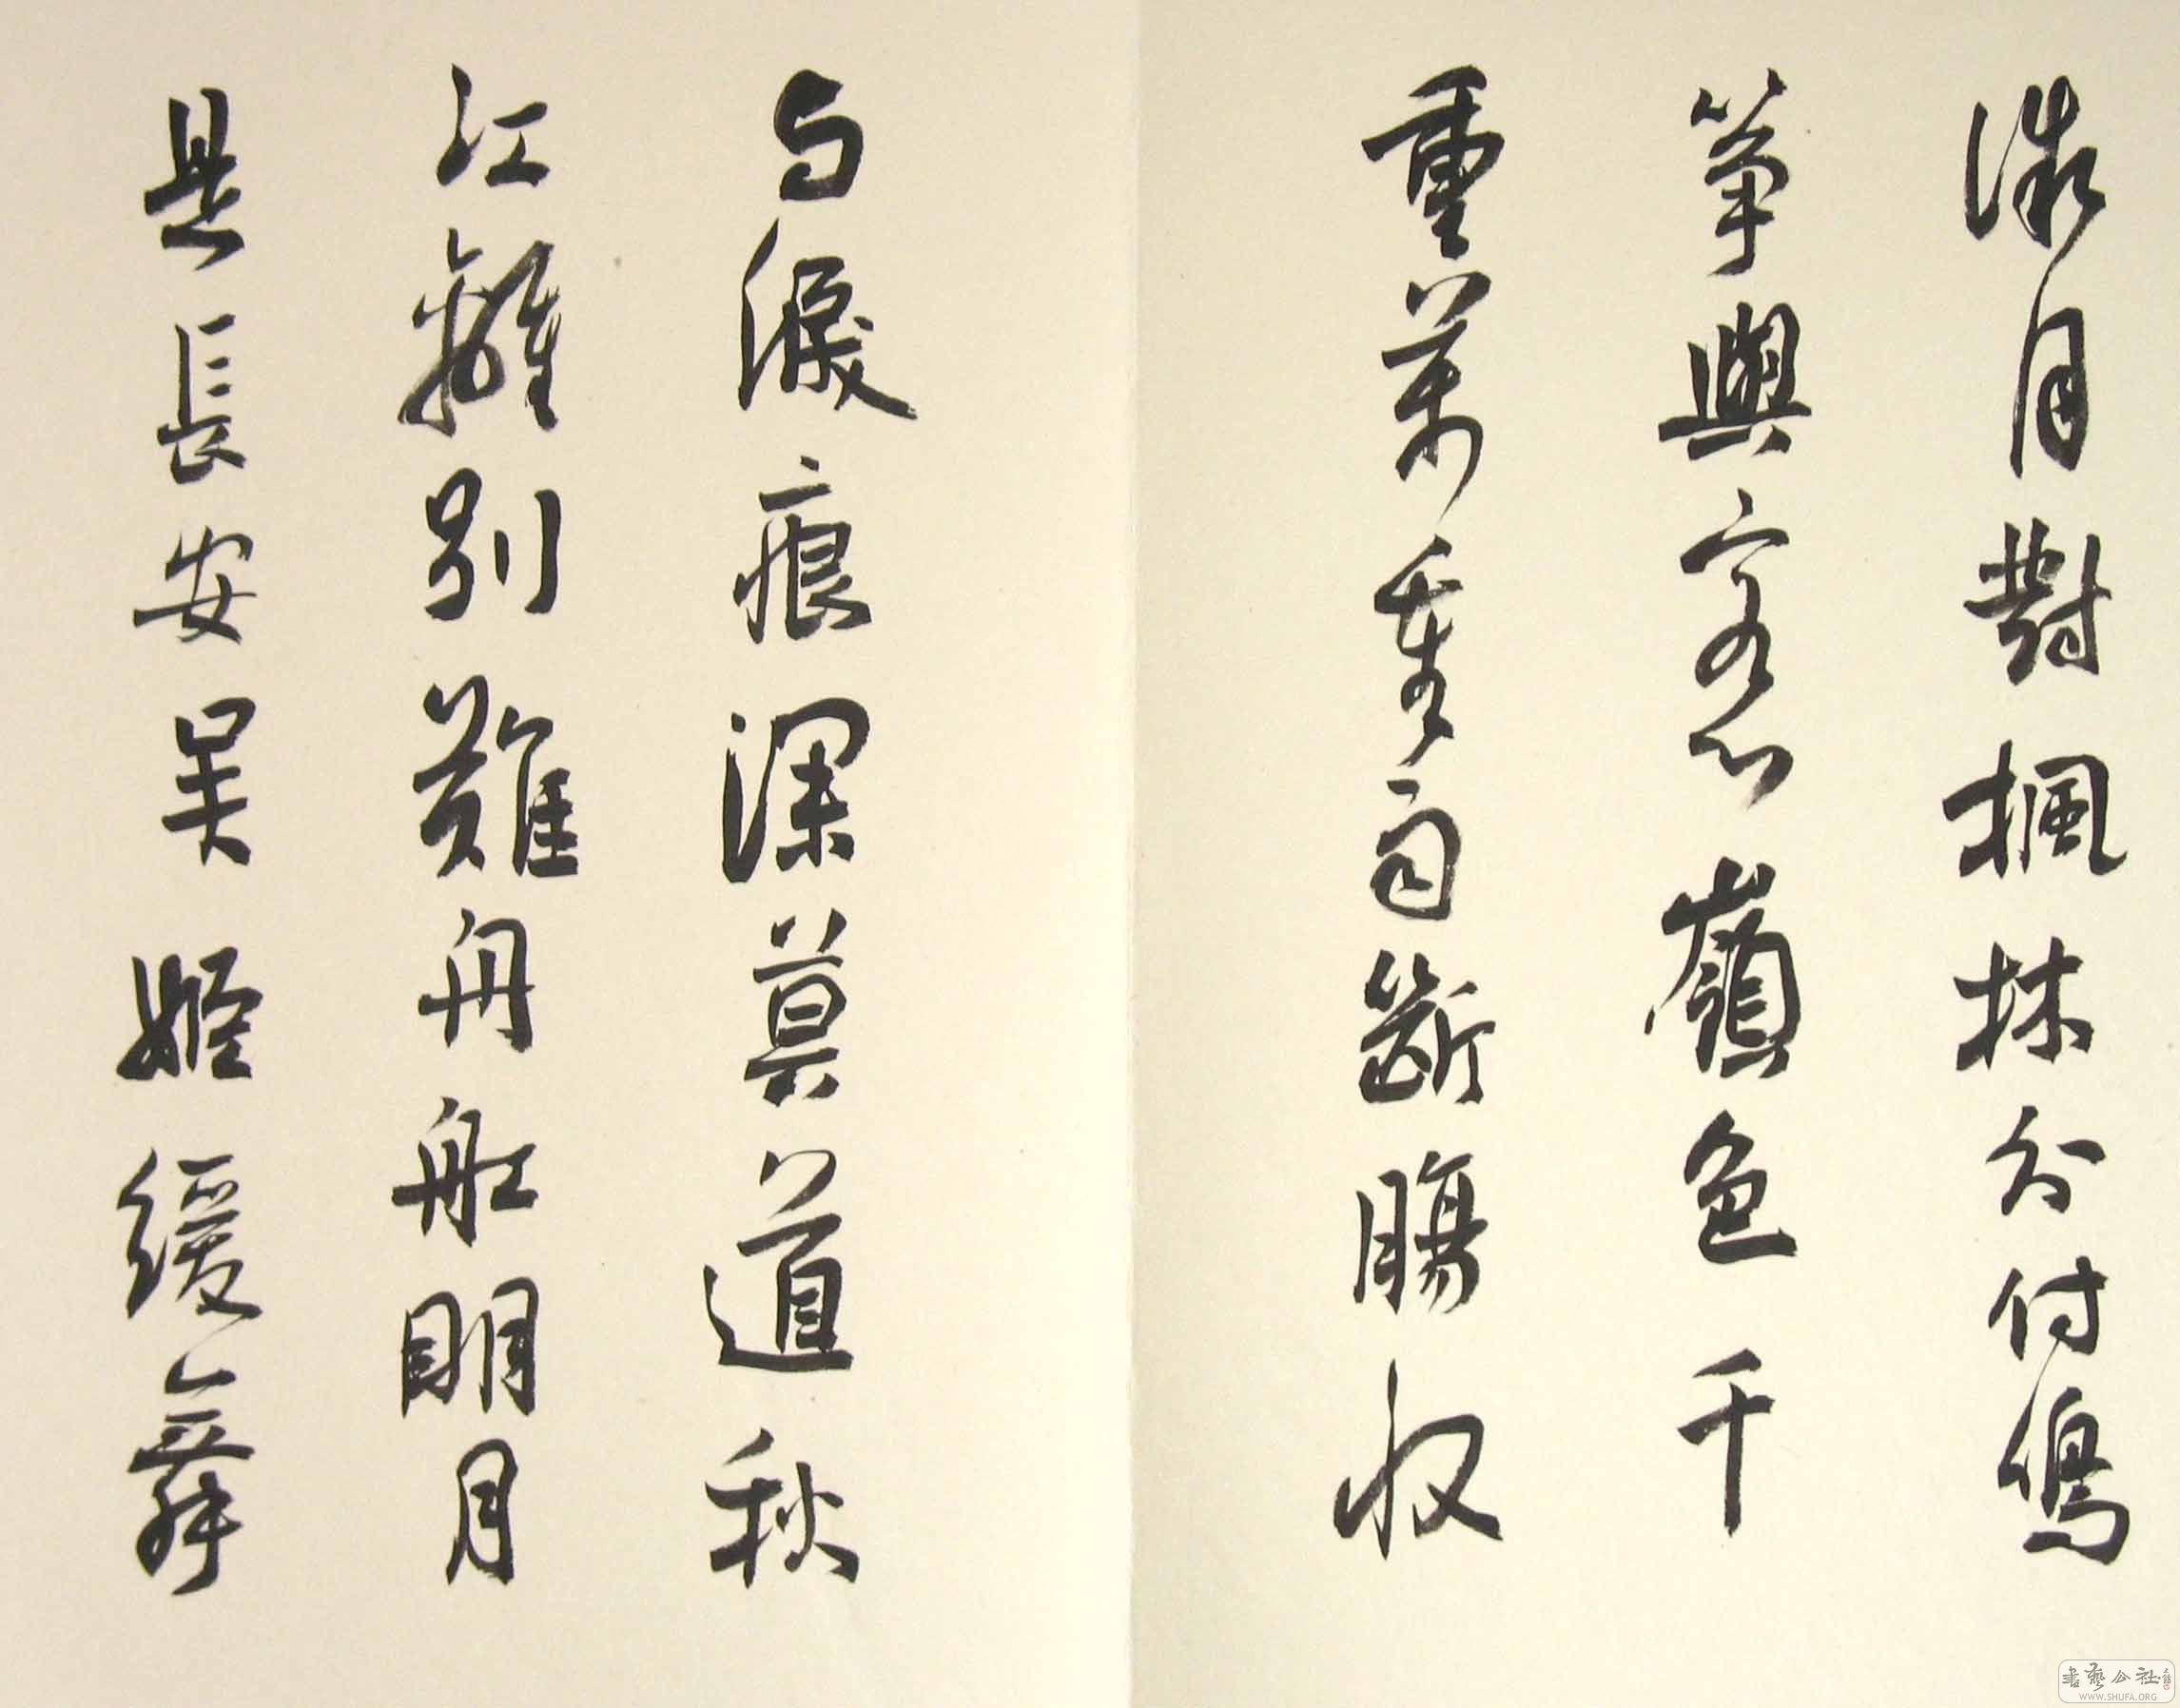 微月對楓林分付鳴
箏與客心嶺色千
重萬重雨斷腸收
与淚痕深莫道秋
江離別難舟船明月
是長安吴姬緩舞
書藝公社
WWW.SHUFA.ORG